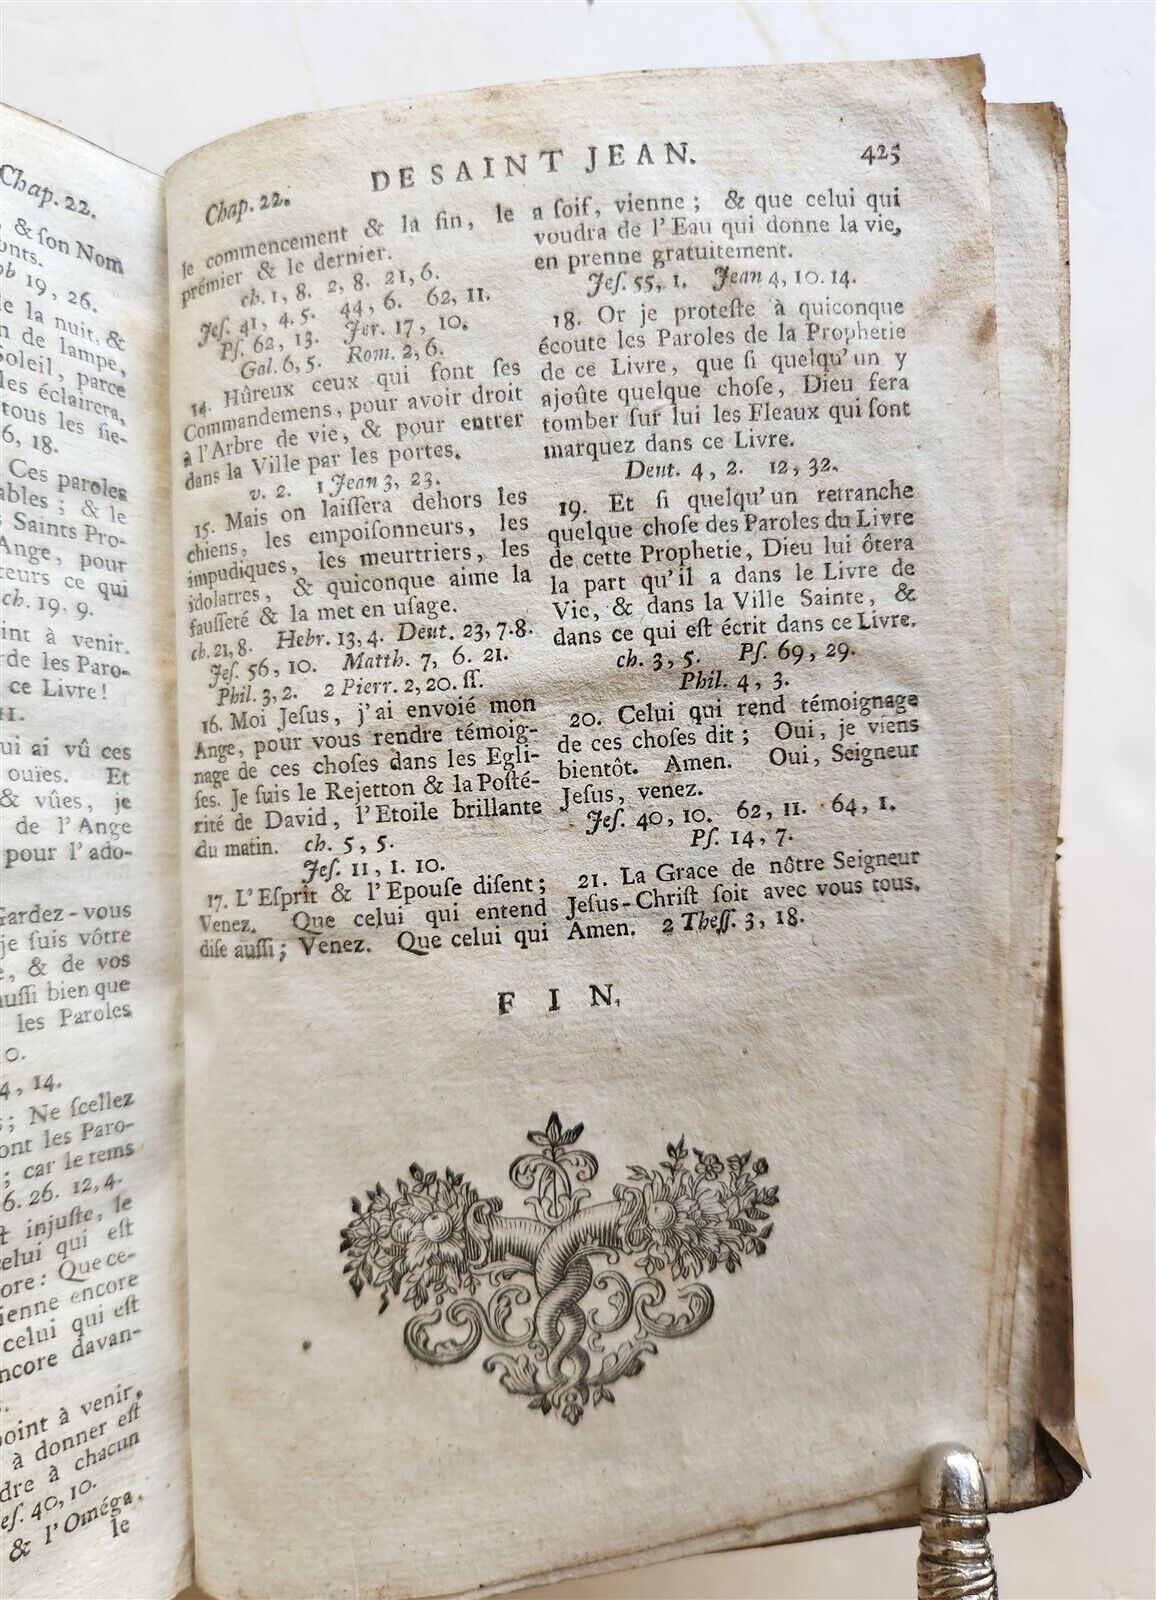 Chap. 22.
, & ſon Nom
onts.
ob 19, 26.
e la nuit, &
n de lampe,
Soleil, parce
les éclairera,
tous les ſie-
6, 18.
Ces paroles
ables; & le
s Saints Pro-
Ange, pour
teurs ce qui
ch. 19, 9.
int à venir.
rde les Paro-
ce Livre!
11.
ui ai vû ces
ouïes. Et
& vûes, je
de l'Ange
pour l'ado-
Gardez-vous
je ſuis vôtre
, & de vos
auſſi bien que
les Paroles
0.
4, 14.
; Ne ſcellez
ont les Paro-
; car le tems
6. 26. 12, 4.
t injuſte, le
celui qui eſt
ore: Que ce-
ienne encore
celui qui eſt
ncore davan-
point à venir,
à donner eſt
dre à chacun
eſ. 40, 10.
& l'Oméga,
le
DE SAINT JEAN. 425
Chap. 22.
le commencement & la fin, le
prémier & le dernier.
ch. 1, 8. 2, 8. 21, 6.
Jeſ. 41, 4. 5. 44, 6. 62, 11.
Pſ. 62, 13. Jer. 17, 10.
Gal. 6, 5. Rom. 2, 6.
14. Hûreux ceux qui font ſes
Commandemens, pour avoir droit
à l'Arbre de vie, & pour entrer
dans la Ville par les portes.
v. 2. 1 Jean 3, 23.
15. Mais on laiſſera dehors les
chiens, les empoiſonneurs, les
impudiques, les meurtriers, les
idolatres, & quiconque aime la
fauſſeté & la met en uſage.
ch. 21, 8. Hebr. 13, 4. Deut. 23, 7. 8.
Jeſ. 56, 10. Matth. 7, 6. 21.
Phil. 3, 2. 2 Pierr. 2, 20. ſſ.
16. Moi Jeſus, j'ai envoié mon
Ange, pour vous rendre témoig-
nage de ces choſes dans les Egli-
ſes. Je ſuis le Rejetton & la Poſté-
rité de David, l'Etoile brillante
du matin. ch. 5, 5.
Jeſ. 11, 1. 10.
17. L'Eſprit & l'Epouſe diſent;
Venez. Que celui qui entend
diſe auſſi; Venez. Que celui qui
a ſoif, vienne; & que celui qui
voudra de l'Eau qui donne la vie,
en prenne gratuitement.
Jeſ. 55, 1. Jean 4, 10. 14.
18. Or je proteſte à quiconque
écoute les Paroles de la Prophetie
de ce Livre, que ſi quelqu'un y
ajoûte quelque choſe, Dieu fera
tomber ſur lui les Fleaux qui ſont
marquez dans ce Livre.
Deut. 4, 2. 12, 32.
19. Et ſi quelqu'un retranche
quelque choſe des Paroles du Livre
de cette Prophetie, Dieu lui ôtera
la part qu'il a dans le Livre de
Vie, & dans la Ville Sainte, &
dans ce qui eſt écrit dans ce Livre.
ch. 3, 5. Pſ. 69, 29.
Phil. 4, 3.
20. Celui qui rend témoignage
de ces choſes dit; Oui, je viens
bientôt. Amen. Oui, Seigneur
Jeſus, venez.
Jeſ. 40, 10. 62, 11. 64, 1.
Pſ. 14, 7.
21. La Grace de nôtre Seigneur
Jeſus-Chriſt ſoit avec vous tous.
Amen. 2 Theſſ. 3, 18.
FIN.